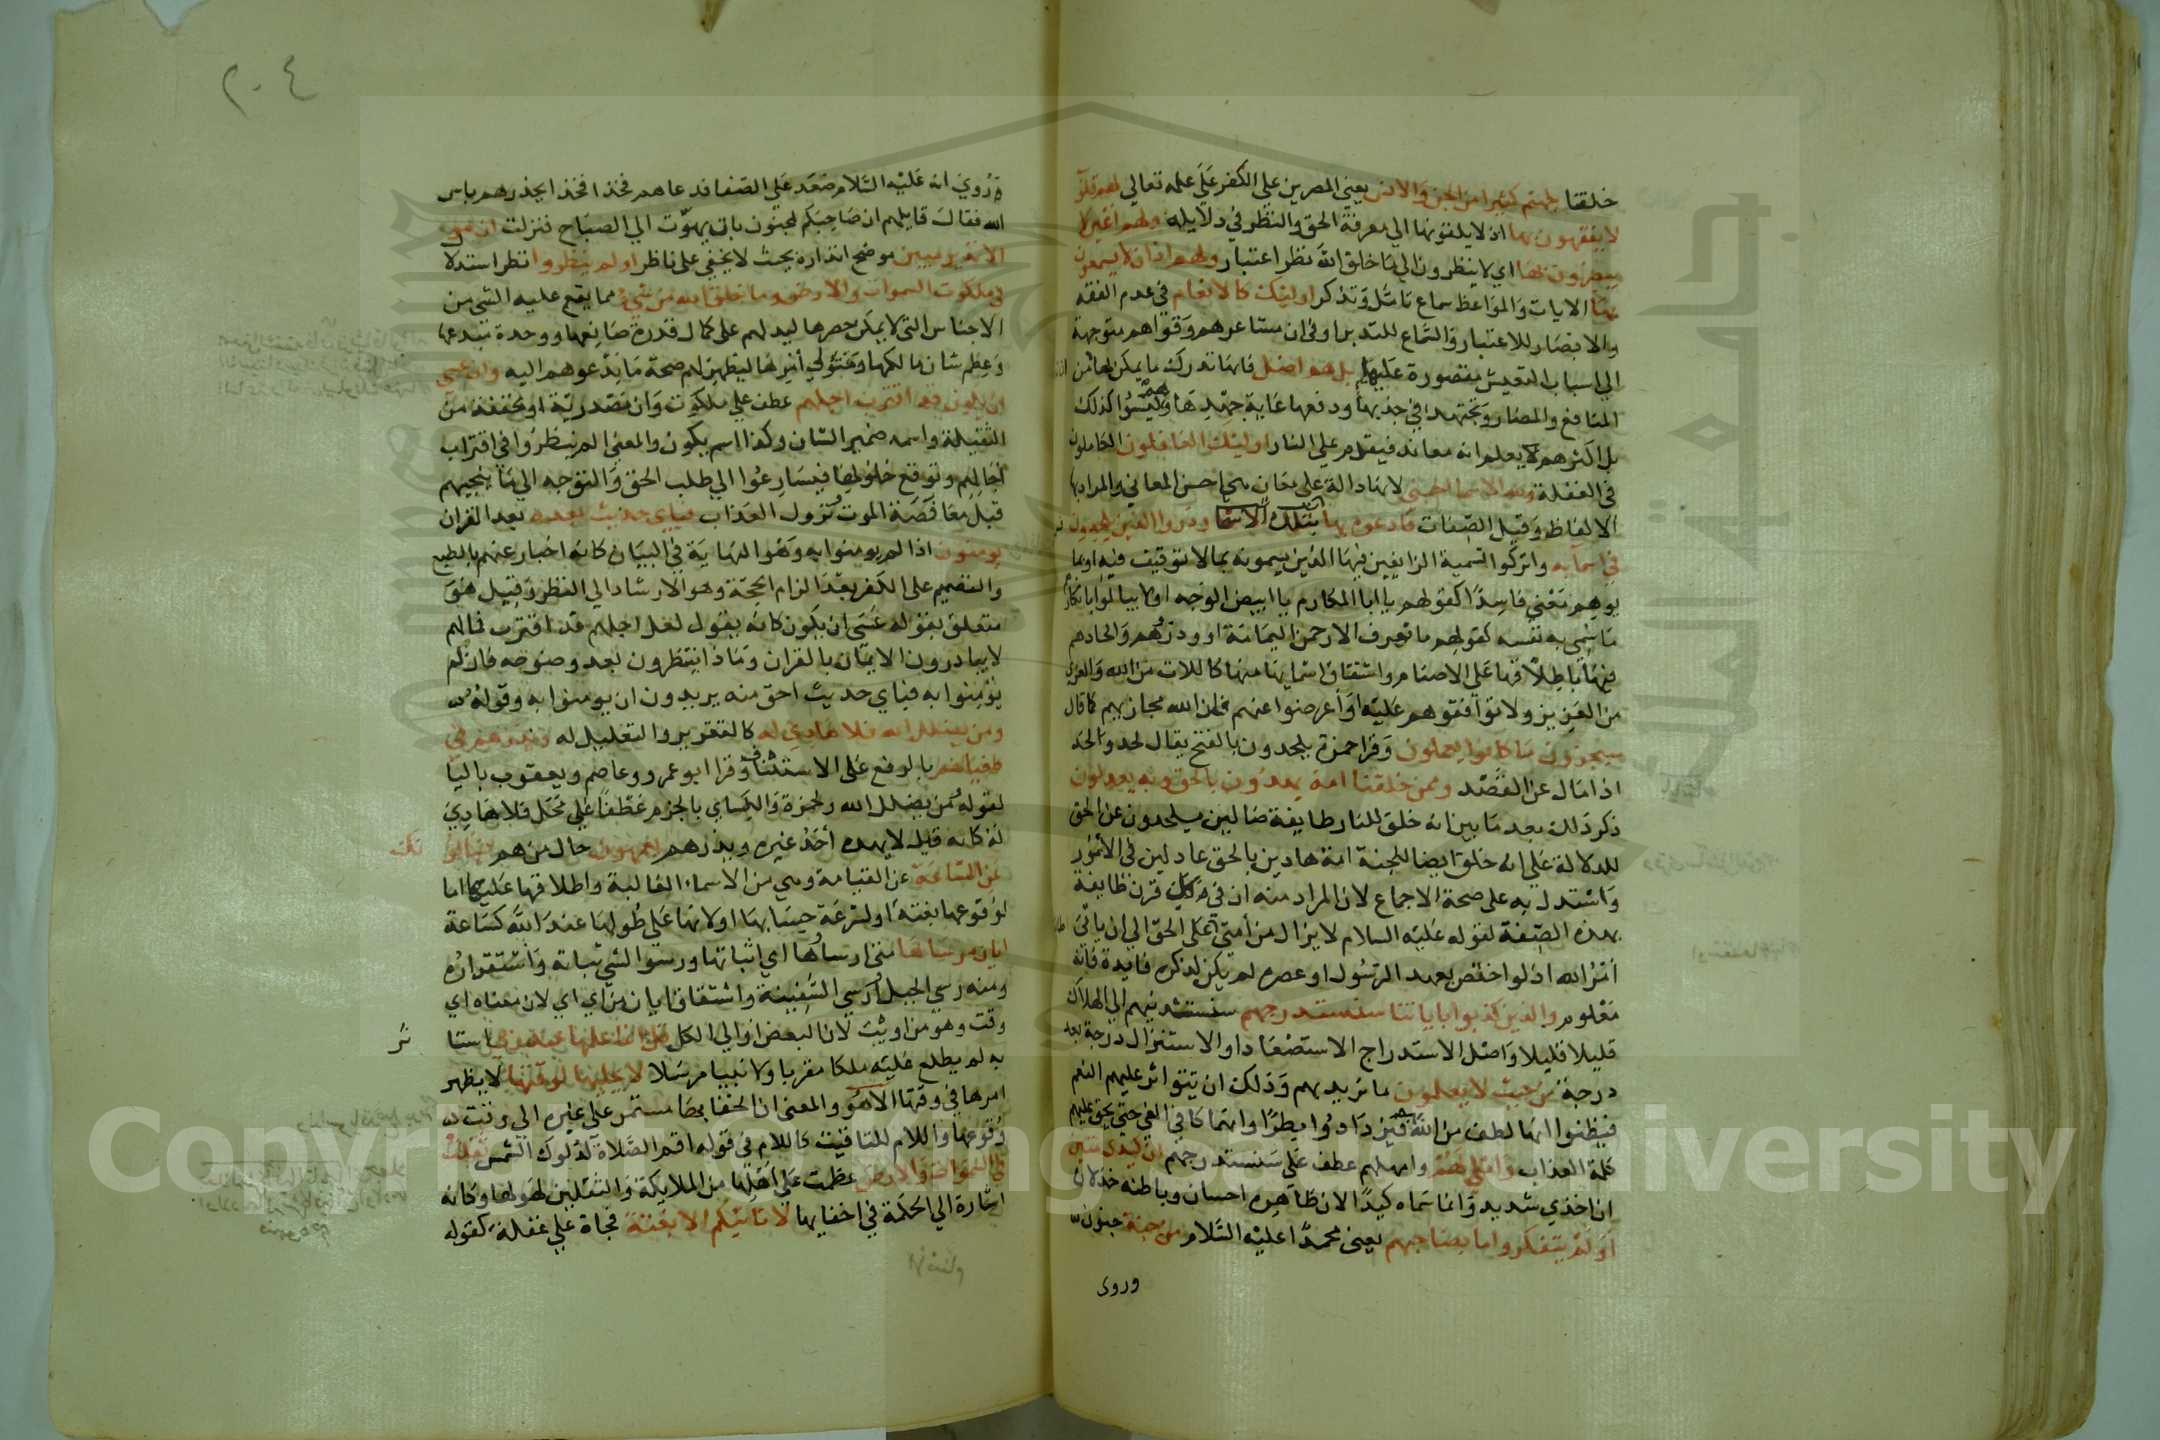 خلقنا لجهنم كثيرا من الجن والانس يعني المصرين على الكفر على علمه تعالي لهم قلوب
لا يفقهون بها اذ لا يلقونها الي معرفة الحق والنظر في دلايله ولهم اعين لا
يبصرون بها اي لا ينظرون الي ما خلق الله نظر اعتبار ولهم اذان لا يسمعون
بها الايات والمواعظ سماع تامل وتذكر اوليك كالانعام في عدم الفقه
والابصار للاعتبار والسماع للتدبر او في ان مشاعرهم وقواهم متوجهة
الي اسباب التعيش مقصورة عليها بل هم اضل فانها تدرك ما يمكن لها من
المنافع والمضار وتجتهد في جذبها ودفعها غاية جهدها وهم ليسوا كذلك
بل اكثرهم يعلم انه معاند فيقدم علي النار اوليك الغافلون الكاملون
في الغفلة ولله الاسما الحسنى لانها دالة على معان هي احسن المعاني والمراد بها
الالفاظ وقيل الصفات فادعوه بها بتلك الاسما وذروا الذين يلحدون
في اسمايه واتركوا التسمية الزايغين فيها الذين يسمونه بما لا توقيف فيه او بما
يوهم معني فاسدا كقولهم يا ابا المكارم يا ابيض الوجه او لا يبالوا بانكار
ما سمي به نفسه كقولهم ما نعرف الا رحمن اليمامة او وذروهم والحادهم
فيها باطلاقها على الاصنام واشتقاق اسمايها منها كاللات من الله والعزى
من العزيز ولا توافقوهم عليه او اعرضوا عنهم فان الله مجازيهم كما قال
سيجزون ما كانوا يعملون وقرا حمزة يلحدون بالفتح يقال لحد والحد
اذا مال عن القصد وممن خلقنا امة يهدون بالحق وبه يعدلون
ذكر ذلك بعد ما بين انه خلق للنار طايفة ضالين ملحدون عن الحق
للدلالة على انه خلق ايضا للجنة امة هادين بالحق عادلين في الامور
واستدل به على صحة الاجماع لان المراد منه ان في كل قرن طايفة
بهذه الصفة لقوله عليه السلام لا يزال من امتي على الحق الي ان ياتي
امر الله اذ لو اختص بعهد الرسول او عصره لم يكن لذكره فايدة فانه
معلوم والذين كذبوا باياتنا سنستدرجهم سنستدنيهم الي الهلاك
قليلا قليلا واصل الاستدراج الاستصعاد او الاستنزال درجة بعد
درجة من حيث لا يعلمون ما نريد بهم وذلك ان تتواتر عليهم النعم
فيظنوا انها لطف من الله فيزدادوا بطرا وانهماكا في الغي حتى يحق عليهم
كلمة العذاب واملي لهم وامهلهم عطف على سنستدرجهم ان كيدي متين
ان اخذي شديد وانما سماه كيدا لان ظاهره احسان وباطنه خذلان
اولم يتفكروا ما بصاحبهم يعني محمدا عليه السلام من جنة جنون
وروى
٢٠٤
وروي انه عليه السلام صعد على الصفا فدعاهم فخذا فخذا يحذرهم باس
الله فقال قايلهم ان صاحبكم لمجنون بات يهوت الي الصباح فنزلت ان هو
الا نذير مبين موضح انذاره بحيث لا يخفي على ناظر اولم ينظروا نظر استدلا
في ملكوت السموات والارض وما خلق الله من شي مما يقع عليه الشي من
الاجناس التي لا يمكن حصرها ليدلهم على كمال قدرة صانعها ووحدة مبدعها
وعظم شان مالكها ومتولي امرها ليظهر لهم صحة ما يدعوهم اليه وان عسى
ان يكون قد اقترب اجلهم عطف علي ملكوت وان مصدرية او مخففة من
الثقيلة واسمه ضمير الشان وكذا اسم يكون والمعني الم ينظروا في اقتراب
اجالهم وتوقع حلولها فيسارعوا الي طلب الحق والتوجه الي ما ينجيهم
قبل مغافصة الموت ونزول العذاب فباي حديث بعده بعد القران
يومنون اذا لم يومنوا به وهو النهاية في البيان كانه اخبار عنهم بالطبع
والتصميم على الكفر بعد الزام الحجة وهو الارشاد الي النظر وقيل هو
متعلق بقوله عسى ان يكون كانه يقول لعل اجلهم قد اقترب فما لهم
لا يبادرون الايمان بالقران وماذا ينتظرون بعد وضوحه فان لم
يؤمنوا به فباي حديث احق منه يريدون ان يومنوا به وقوله
ومن يضلل الله فلا هادي له كالتقرير والتعليل له ونذرهم في
طغيانهم بالرفع على الاستئناف وقرا ابو عمرو وعاصم ويعقوب باليا
لقوله من يضلل الله وحمزة والكساي بالجزم عطفا على محل فلا هادي
له كانه قيل لا يهده احد غيره ويذرهم يعمهون حال من هم يسالونك
عن الساعة عن القيامة وهي من الاسماء الغالبة واطلاقها عليها اما
لوقوعها بغتة او لسرعة حسابها او لانها على طولها عند الله كساعة
ايان مرساها متى ارساؤها اي اثباتها ورسو الشي ثباته واستقراره
ومنه رسي الجبل وارسي السفينة واشتقاق ايان من اي لان معناه اي
وقت وهو من اويت لان البعض او الي الكل قل انما علمها عند ربي استاثر
به لم يطلع عليه ملكا مقربا ولا نبيا مرسلا لا يجليها لوقتها لا يظهر
امرها في وقتها الا هو والمعني ان الخفا بها مستمر على غيره الي وقت
وقوعها واللام للتاقيت كاللام في قوله اقم الصلاة لدلوك الشمس ثقلت
في السموات والارض عظمت على اهلها من الملايكة والثقلين لهولها وكانه
اشارة الي الحكمة في اخفايها لا تاتيكم الا بغتة فجاة علي غفلة كقوله
Copyright © King Saud University